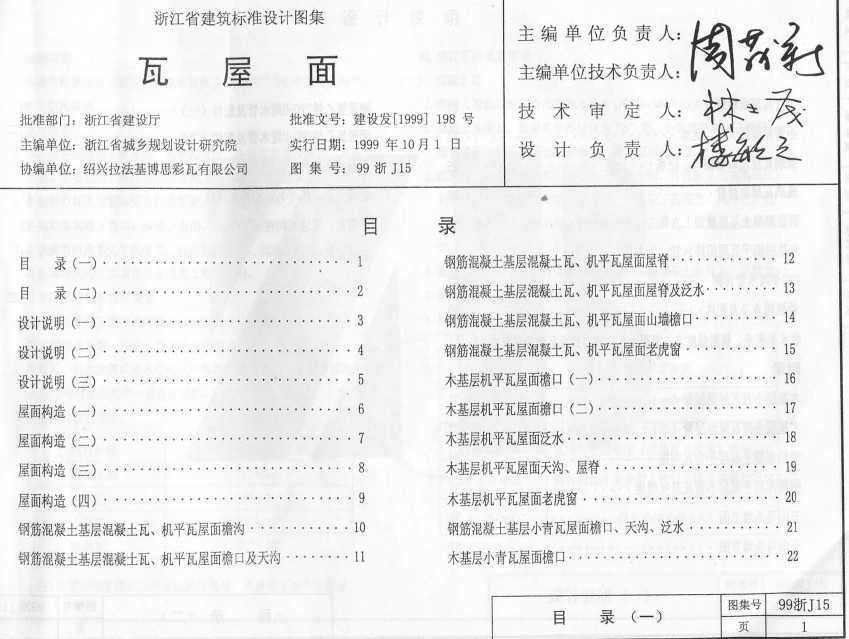 浙江省建筑标准设计图集
瓦 屋 面
批准部门：浙江省建设厅
主编单位：浙江省城乡规划设计研究院
协编单位：绍兴拉法基博思彩瓦有限公司
批准文号：建设发[1999] 198 号
实行日期：1999 年10月1 日
图 集 号：99 浙 J15
主 编 单 位 负 责 人：
主编单位技术负责人：
技 术 审 定 人：
设 计 负 责 人：
目 录
目 录（一）·································1
目 录（二）·································2
设计说明（一）·································3
设计说明（二）·································4
设计说明（三）·································5
屋面构造（一）·································6
屋面构造（二）·································7
屋面构造（三）·································8
屋面构造（四）·································9
钢筋混凝土基层混凝土瓦、机平瓦屋面檐沟············10
钢筋混凝土基层混凝土瓦、机平瓦屋面檐口及天沟········11
钢筋混凝土基层混凝土瓦、机平瓦屋面屋脊············12
钢筋混凝土基层混凝土瓦、机平瓦屋面屋脊及泛水·········13
钢筋混凝土基层混凝土瓦、机平瓦屋面山墙檐口·········14
钢筋混凝土基层混凝土瓦、机平瓦屋面老虎窗··········15
木基层机平瓦屋面檐口（一）·····················16
木基层机平瓦屋面檐口（二）·····················17
木基层机平瓦屋面泛水·························18
木基层机平瓦屋面天沟、屋脊····················19
木基层机平瓦屋面老虎窗······················20
钢筋混凝土基层小青瓦屋面檐口、天沟、泛水··········21
木基层小青瓦屋面檐口························22
目 录 （一）
图集号 99浙J15
页 1